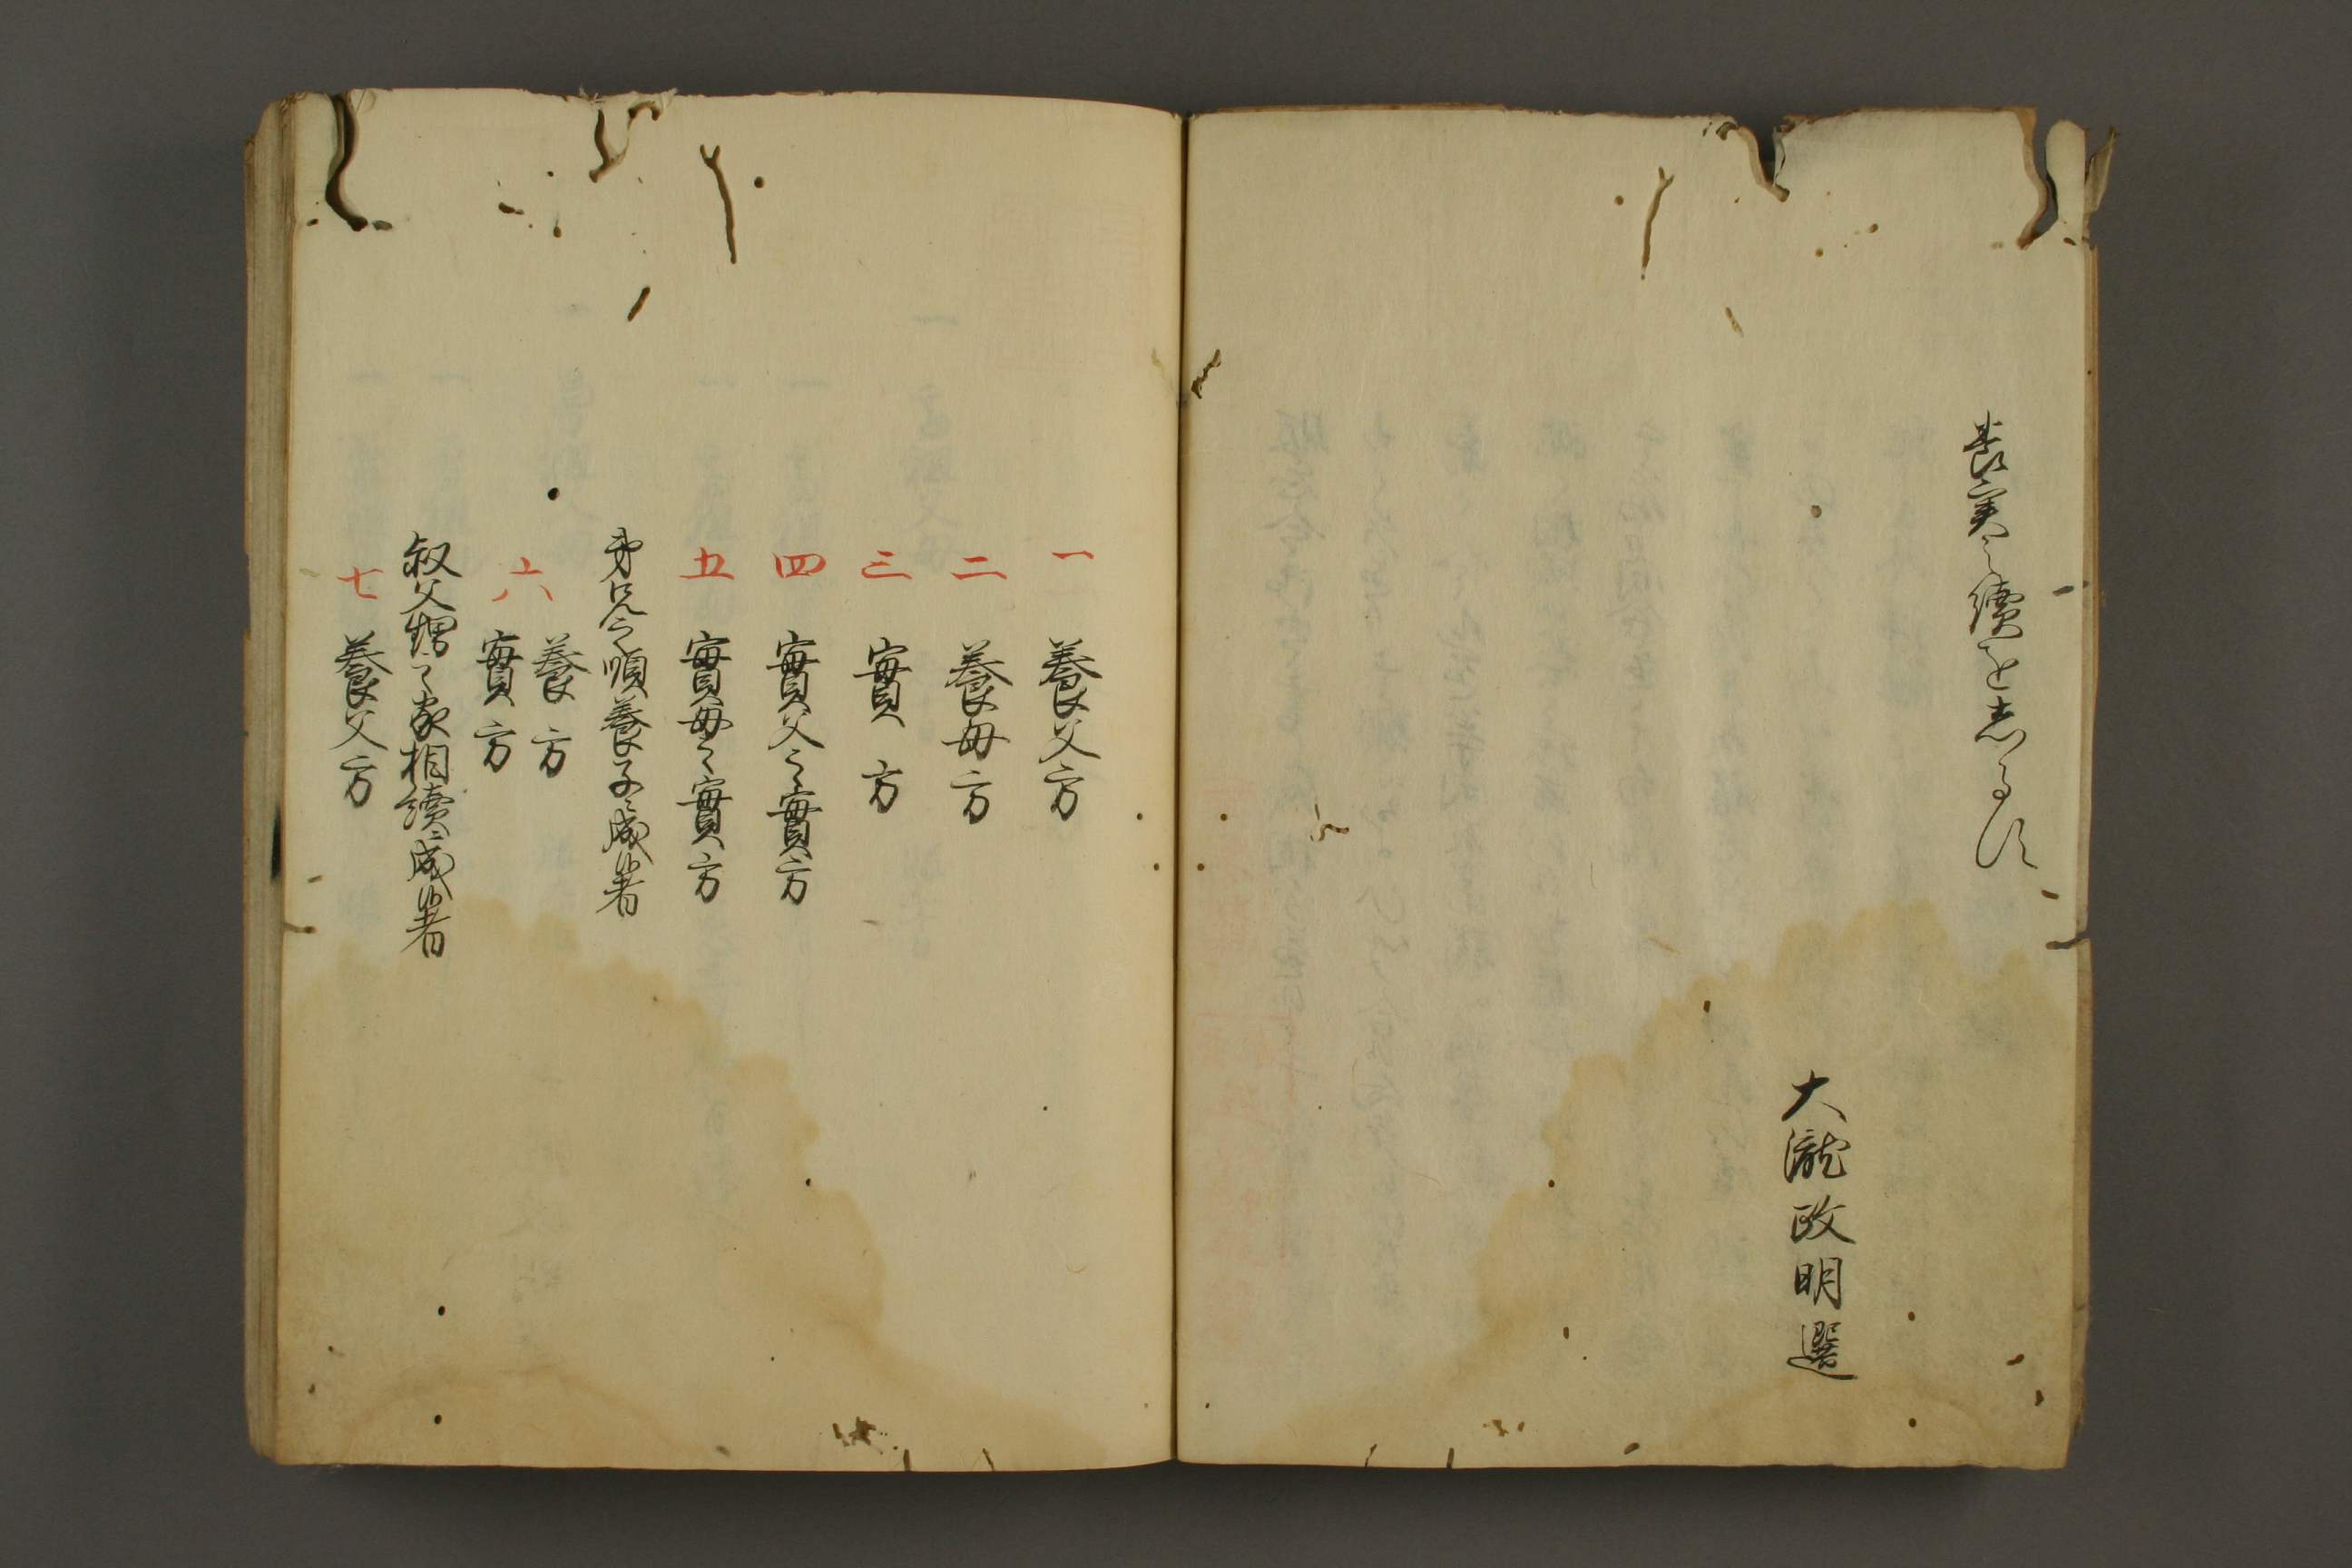 養実之續を志るす
大瀧政明選
一 養父方
二 養毋方
三 實方
四 實父之實方
五 實毋之實方
弟兄之順養子ニ成候者
六 養方
實方
叔父甥之家相續ニ成候者
七 養父方